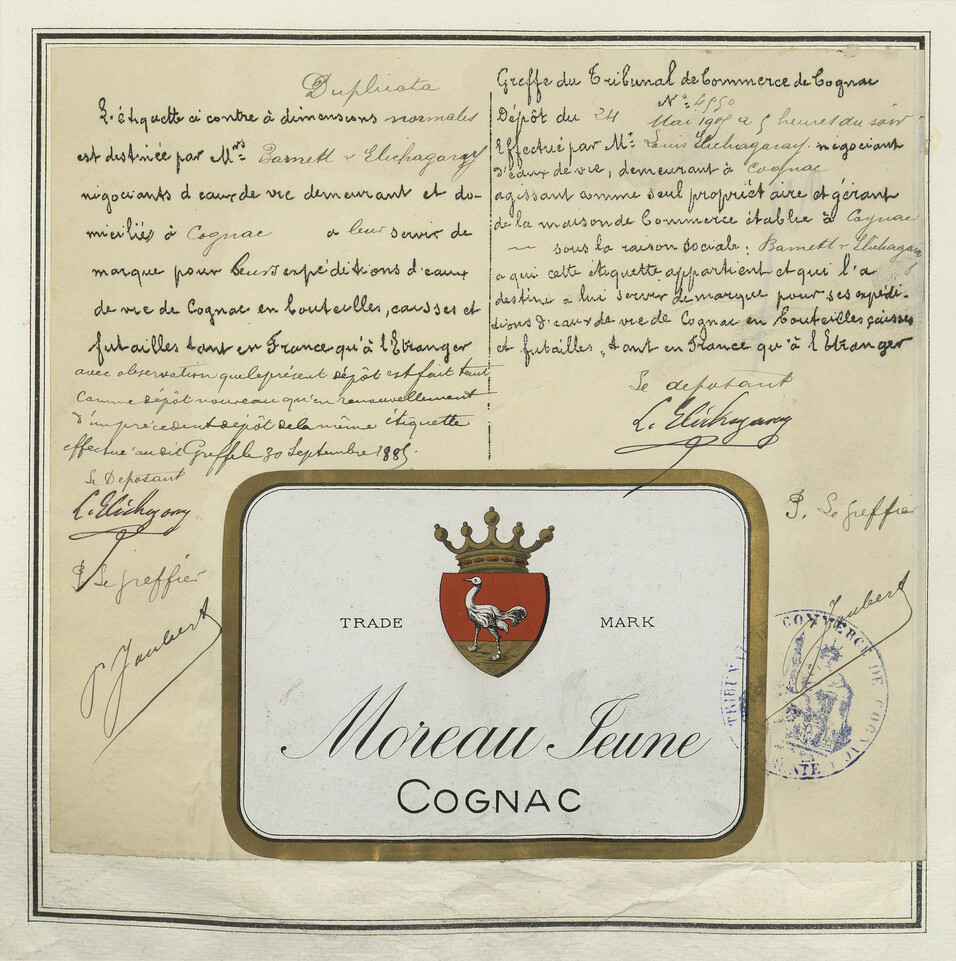 Duplicata
L'étiquette ci contre à dimensions normales
est destinée par Mrs Barnett & Elichagaray
négociants d'eaux de vie demeurant et do-
miciliés à Cognac a leur servir de
marque pour leurs expéditions d'eaux
de vie de Cognac en bouteilles, caisses et
futailles tant en France qu'à l'Etranger
avec observation que le présent dépôt est fait tant
comme dépôt nouveau qu'en renouvellement
d'un précédent dépôt de la même étiquette
effectué au dit Greffe le 30 Septembre 1885
Le Déposant
L. Elichagaray
P. Le Greffier
P. Joubert
Greffe du Tribunal de Commerce de Cognac
No
Dépôt du 24 Mai 1905 a 5 heures du soir
Effectué par Mr Louis Elichagaray négociant
d'eaux de vie, demeurant à Cognac
agissant comme seul propriétaire et gérant
de la maison de Commerce établie à Cognac
sous la raison sociale: Barnett & Elichagaray
a qui cette étiquette appartient et qui l'a
destine a lui servir de marque pour ses expédi-
tions d'eaux de vie de Cognac en bouteilles caisses
et futailles, tant en France qu'à l'Etranger
Le deposant
L. Elichagaray
P. Le Greffier
Joubert
TRADE MARK
Moreau Jeune
COGNAC
TRIBUNAL COMMERCE DE COGNAC